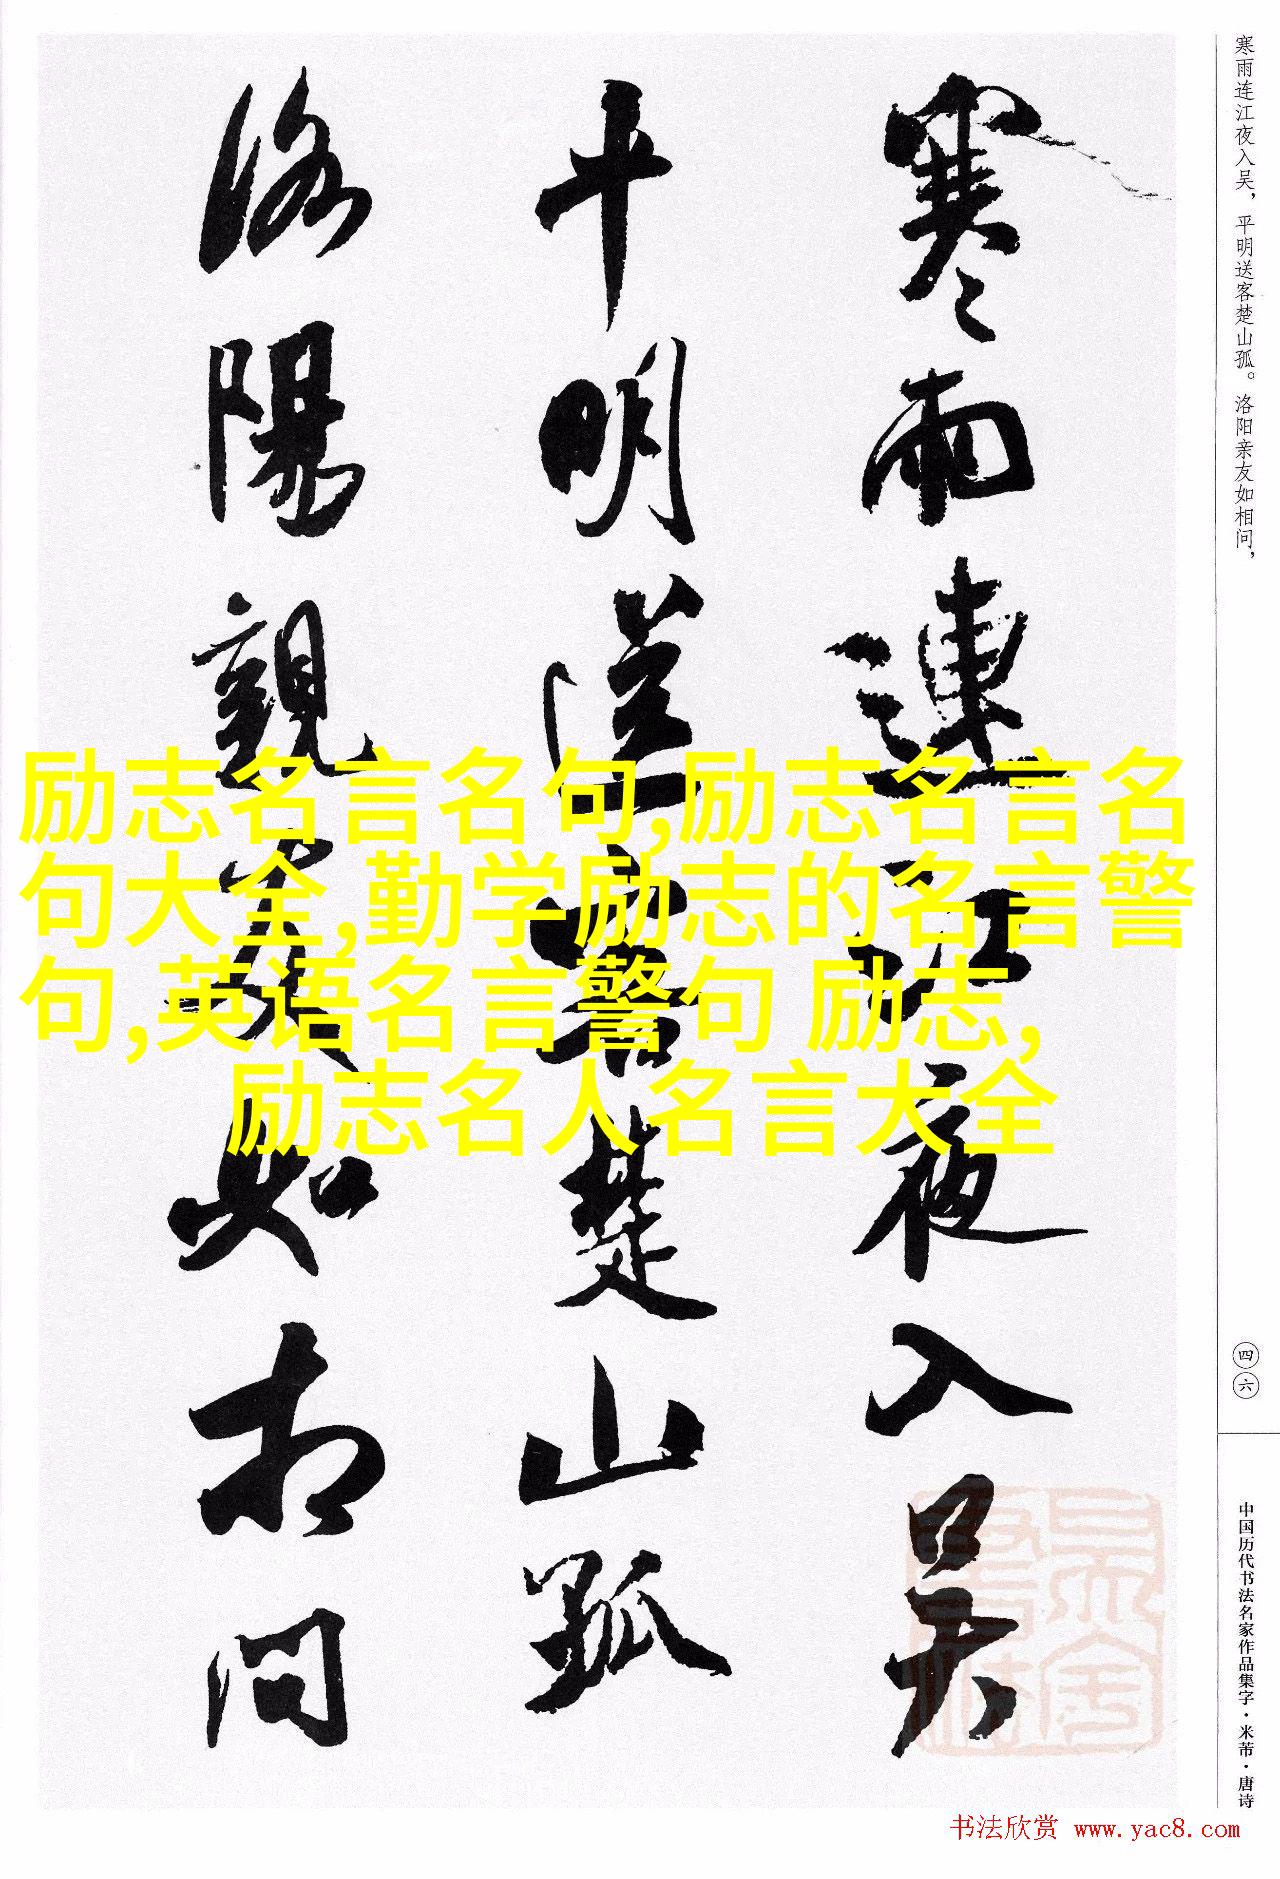 寒雨連江夜入吴
平明送客楚山孤
洛陽親友如相问
寒雨连江夜入吴，平明送客楚山孤。洛阳亲友如相问，
四六
中国历代书法名家作品集字·米芾·唐诗
励志名言名句,励志名言名
句大全,勤学励志的名言警
句,英语名言警句 励志,
励志名人名言大全
书法欣赏 www.yac8.com